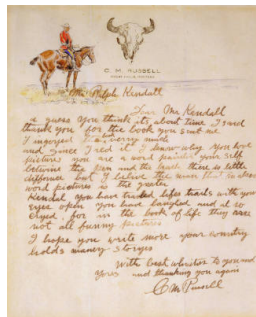 C. M. RUSSELL
Mr Ralph Kendall
Dear Mr Kendall
I guess you think its about time I said
thank you for the book you sent me
I injoyed it very much
and since I red it I know why you like
pictures you are a word painter your self
betwine the pen and the brush there is little
differnce but I belive the man that makes
word pictures is the greater
Kendal you have traded lifes trails with your
eyes open you have laughed and al so
cryed for in the book of life they are
not all funny pictures
I hope you write more your country
holds maney storyes
With best whishes to you and
yours and thanking you again
C M Russell